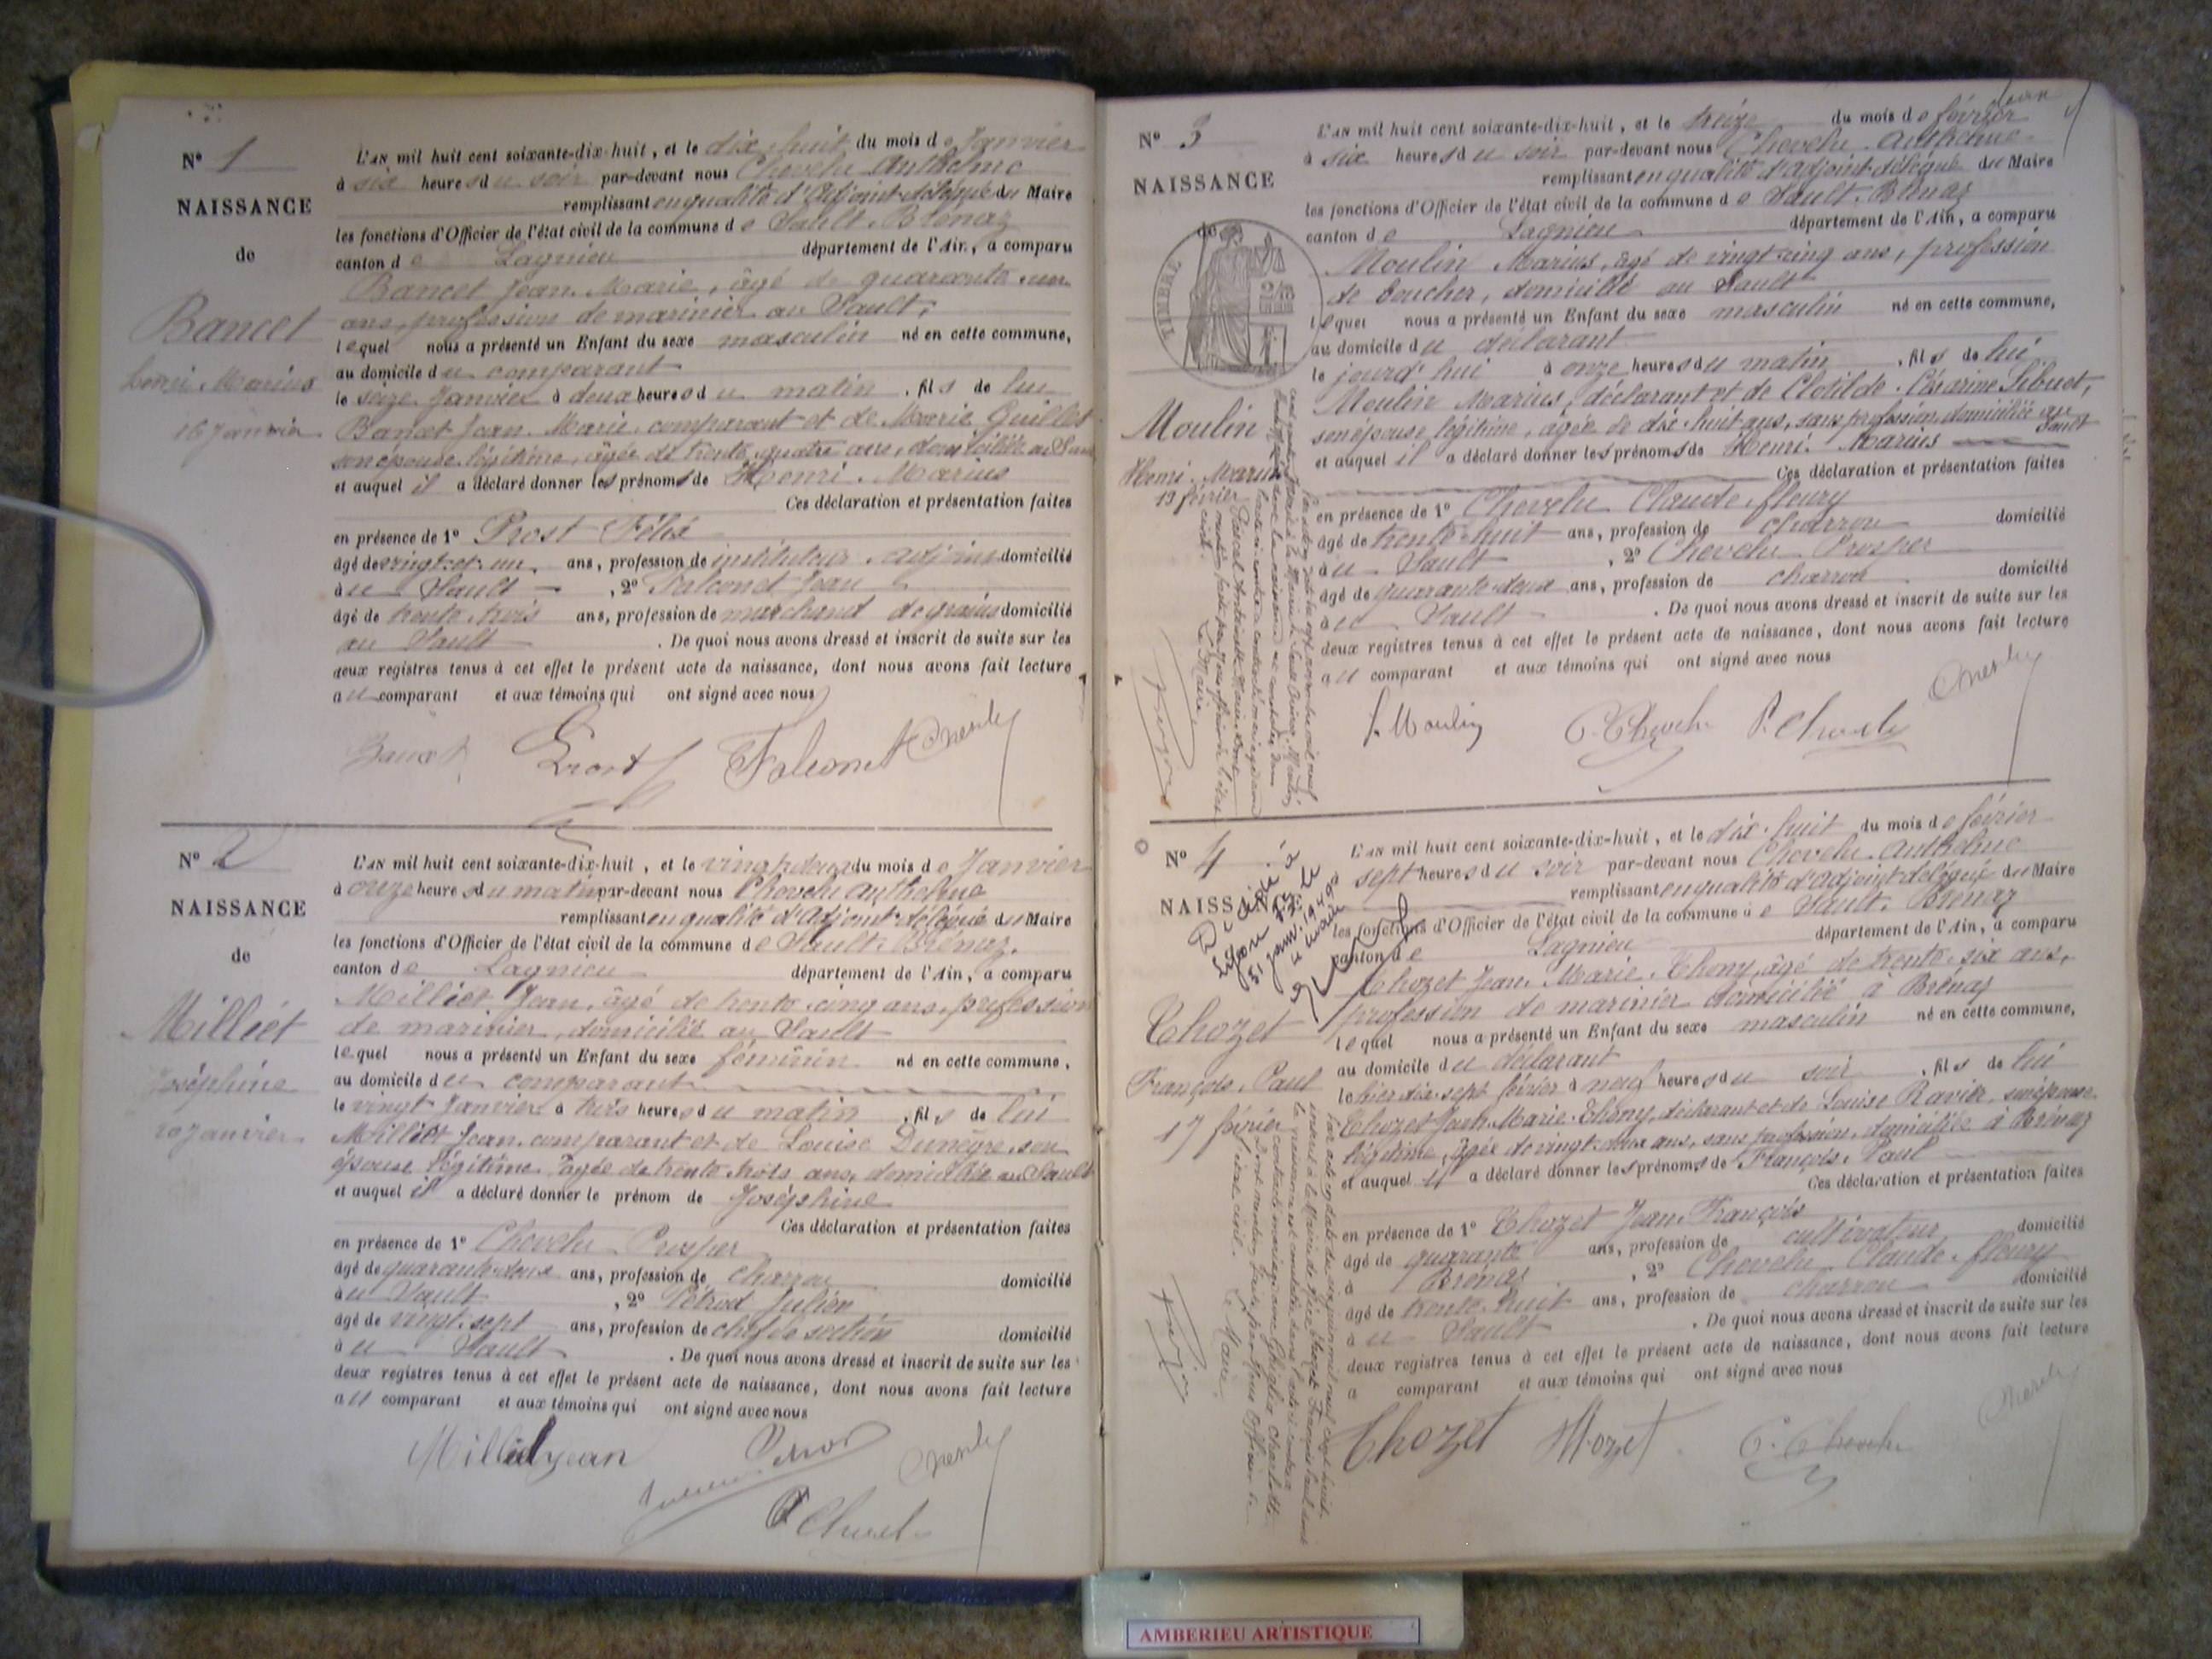 N° 1
NAISSANCE
de
Bancet
Henri Marius
16 Janvier
L'AN mil huit cent soixante-dix-huit, et le dix huit du mois de Janvier
à six heures du soir par-devant nous Chevelu Anthelme
remplissant en qualité d'Adjoint délégué du Maire
les fonctions d'Officier de l'état civil de la commune de Sault-Brénaz
canton de Lagnieu département de l'Ain, a comparu
Bancet Jean Marie, âgé de quarante un
ans, profession de marinier au Sault,
lequel nous a présenté un Enfant du sexe masculin né en cette commune,
au domicile du comparant
le seize Janvier à deux heures du matin, fils de lui
Bancet Jean Marie comparant et de Marie Guillet
son épouse légitime, âgée de trente quatre ans, domiciliée au Sault
et auquel il a déclaré donner les prénoms de Henri Marius
Ces déclaration et présentation faites
en présence de 1° Prost Félix
âgé de vingt et un ans, profession de instituteur adjoint domicilié
au Sault, 2° Falconet Jean
âgé de trente trois ans, profession de marchand de grains domicilié
au Sault. De quoi nous avons dressé et inscrit de suite sur les
deux registres tenus à cet effet le présent acte de naissance, dont nous avons fait lecture
au comparant et aux témoins qui ont signé avec nous
Bancet Prost Falconet Chevelu
N° 2
NAISSANCE
de
Milliet
Joséphine
20 Janvier
L'AN mil huit cent soixante-dix-huit, et le vingt deux du mois de Janvier
à onze heures du matin par-devant nous Chevelu Anthelme
remplissant en qualité d'Adjoint délégué du Maire
les fonctions d'Officier de l'état civil de la commune de Sault-Brénaz.
canton de Lagnieu département de l'Ain, a comparu
Milliet Jean, âgé de trente cinq ans, profession
de marinier, domicilié au Sault
lequel nous a présenté un Enfant du sexe féminin né en cette commune,
au domicile du comparant
le vingt Janvier à trois heures du matin, fils de lui
Milliet Jean comparant et de Louise Dunègre son
épouse légitime âgée de trente trois ans, domiciliée au Sault
et auquel il a déclaré donner le prénom de Joséphine
Ces déclaration et présentation faites
en présence de 1° Chevelu Prosper
âgé de quarante deux ans, profession de charron domicilié
au Sault, 2° Pétrod Julien
âgé de vingt sept ans, profession de chef de section domicilié
au Sault. De quoi nous avons dressé et inscrit de suite sur les
deux registres tenus à cet effet le présent acte de naissance, dont nous avons fait lecture
au comparant et aux témoins qui ont signé avec nous
Milliet jean Chevelu
P. Chevelu
N° 3
NAISSANCE
de
TIMBRE
Moulin
Henri Marius
13 février
L'AN mil huit cent soixante-dix-huit, et le treize du mois de février
à six heures du soir par-devant nous Chevelu Anthelme
remplissant en qualité d'Adjoint délégué du Maire
les fonctions d'Officier de l'état civil de la commune de Sault-Brénaz
canton de Lagnieu département de l'Ain, a comparu
Moulin Marius, âgé de vingt cinq ans, profession
de boucher, domicilié au Sault
lequel nous a présenté un Enfant du sexe masculin né en cette commune,
au domicile du déclarant
le jourd'hui à onze heures du matin, fils de lui
Moulin Marius, déclarant et de Clotilde Césarine Sibuet,
son épouse légitime, âgée de dix-huit ans, sans profession domiciliée au Sault
et auquel il a déclaré donner les prénoms de Henri Marius
Ces déclaration et présentation faites
en présence de 1° Chevelu Claude fleury
âgé de trente-huit ans, profession de charron domicilié
au Sault, 2° Chevelu Prosper
âgé de quarante deux ans, profession de charron domicilié
au Sault. De quoi nous avons dressé et inscrit de suite sur les
deux registres tenus à cet effet le présent acte de naissance, dont nous avons fait lecture
au comparant et aux témoins qui ont signé avec nous
Moulin C. Chevelu P. Chevelu Chevelu
N° 4
NAISSANCE
Décédé à
Lyon
31 janv. 1949
Thozet
François Paul
17 février
L'AN mil huit cent soixante-dix-huit, et le dix-huit du mois de février
sept heures du soir par-devant nous Chevelu Anthelme
remplissant en qualité d'Adjoint délégué du Maire
les fonctions d'Officier de l'état civil de la commune de Sault-Brénaz
canton de Lagnieu département de l'Ain, a comparu
Thozet Jean Marie Thény, âgé de trente six ans,
profession de marinier domicilié à Brénaz
lequel nous a présenté un Enfant du sexe masculin né en cette commune,
au domicile du déclarant
le hier dix-sept février à neuf heures du soir, fils de lui
Thozet Jean Marie Thény, déclarant et de Louise Ravier son épouse
légitime, âgée de vingt deux ans, sans profession, domiciliée à Brénaz
et auquel il a déclaré donner les prénoms de François Paul
Ces déclaration et présentation faites
en présence de 1° Thozet Jean François
âgé de quarante ans, profession de cultivateur domicilié
à Brénaz, 2° Chevelu Claude fleury
âgé de trente huit ans, profession de charron domicilié
au Sault. De quoi nous avons dressé et inscrit de suite sur les
deux registres tenus à cet effet le présent acte de naissance, dont nous avons fait lecture
a comparant et aux témoins qui ont signé avec nous
Thozet Thozet C. Chevelu Chevelu
AMBERIEU ARTISTIQUE